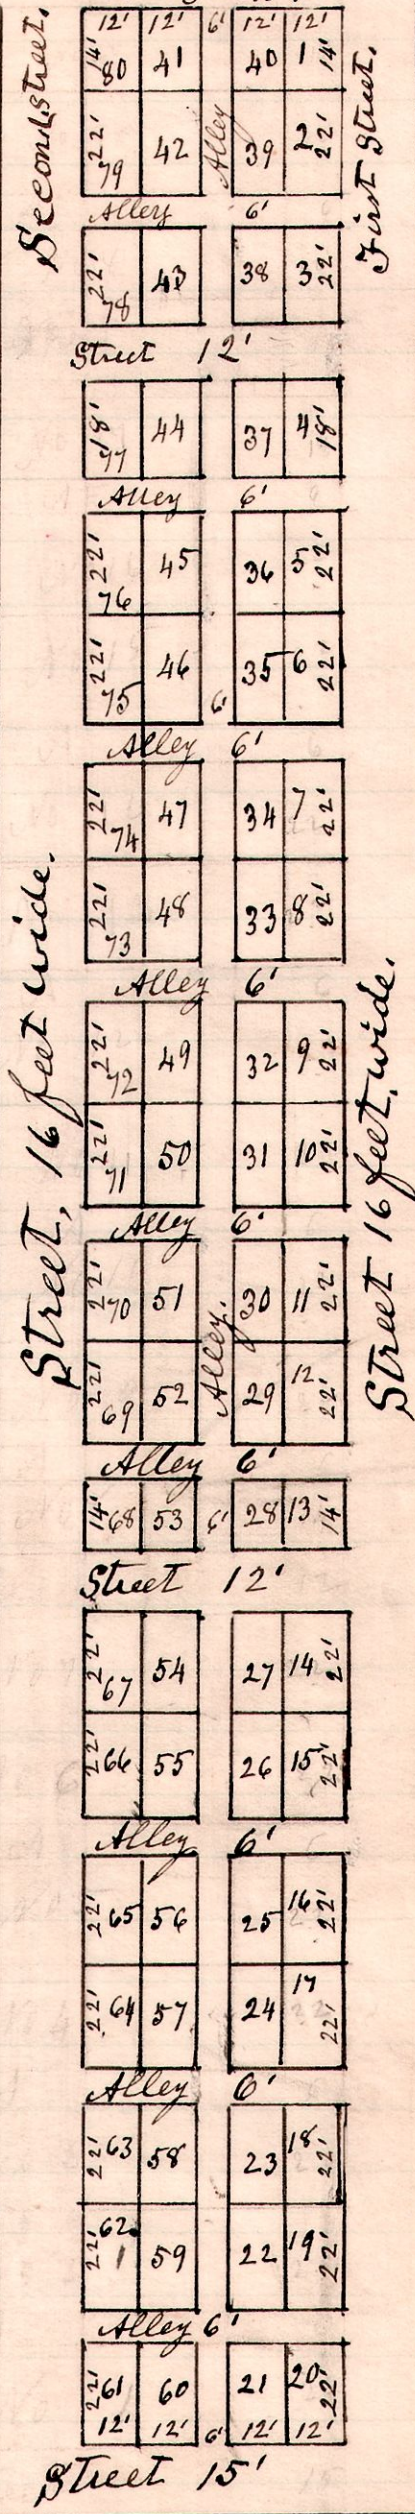 12' 12' 6' 12' 12'
14' 80 41 40 1 14'
22' 79 42 Alley 39 2 22'
Alley 6'
22' 78 43 38 3 22'
Street 12'
18' 77 44 37 4 18'
Alley 6'
22' 76 45 36 5 22'
22' 75 46 6' 35 6 22'
Alley 6'
22' 74 47 34 7 22'
22' 73 48 33 8 22'
Alley 6'
22' 72 49 32 9 22'
22' 71 50 31 10 22'
Alley 6'
22' 70 51 Alley. 30 11 22'
22' 69 52 29 12 22'
Alley 6'
14' 68 53 6' 28 13 14'
Street 12'
22' 67 54 27 14 22'
22' 66 55 26 15 22'
Alley 6'
22' 65 56 25 16 22'
22' 64 57 24 17 22'
Alley 6'
22' 63 58 23 18 22'
22' 62 59 22 19 22'
Alley 6'
22' 61 60 21 20 22'
12' 12' 6' 12' 12'
Street 15'
Second street.
Street, 16 feet wide.
First Street.
Street 16 feet, wide.